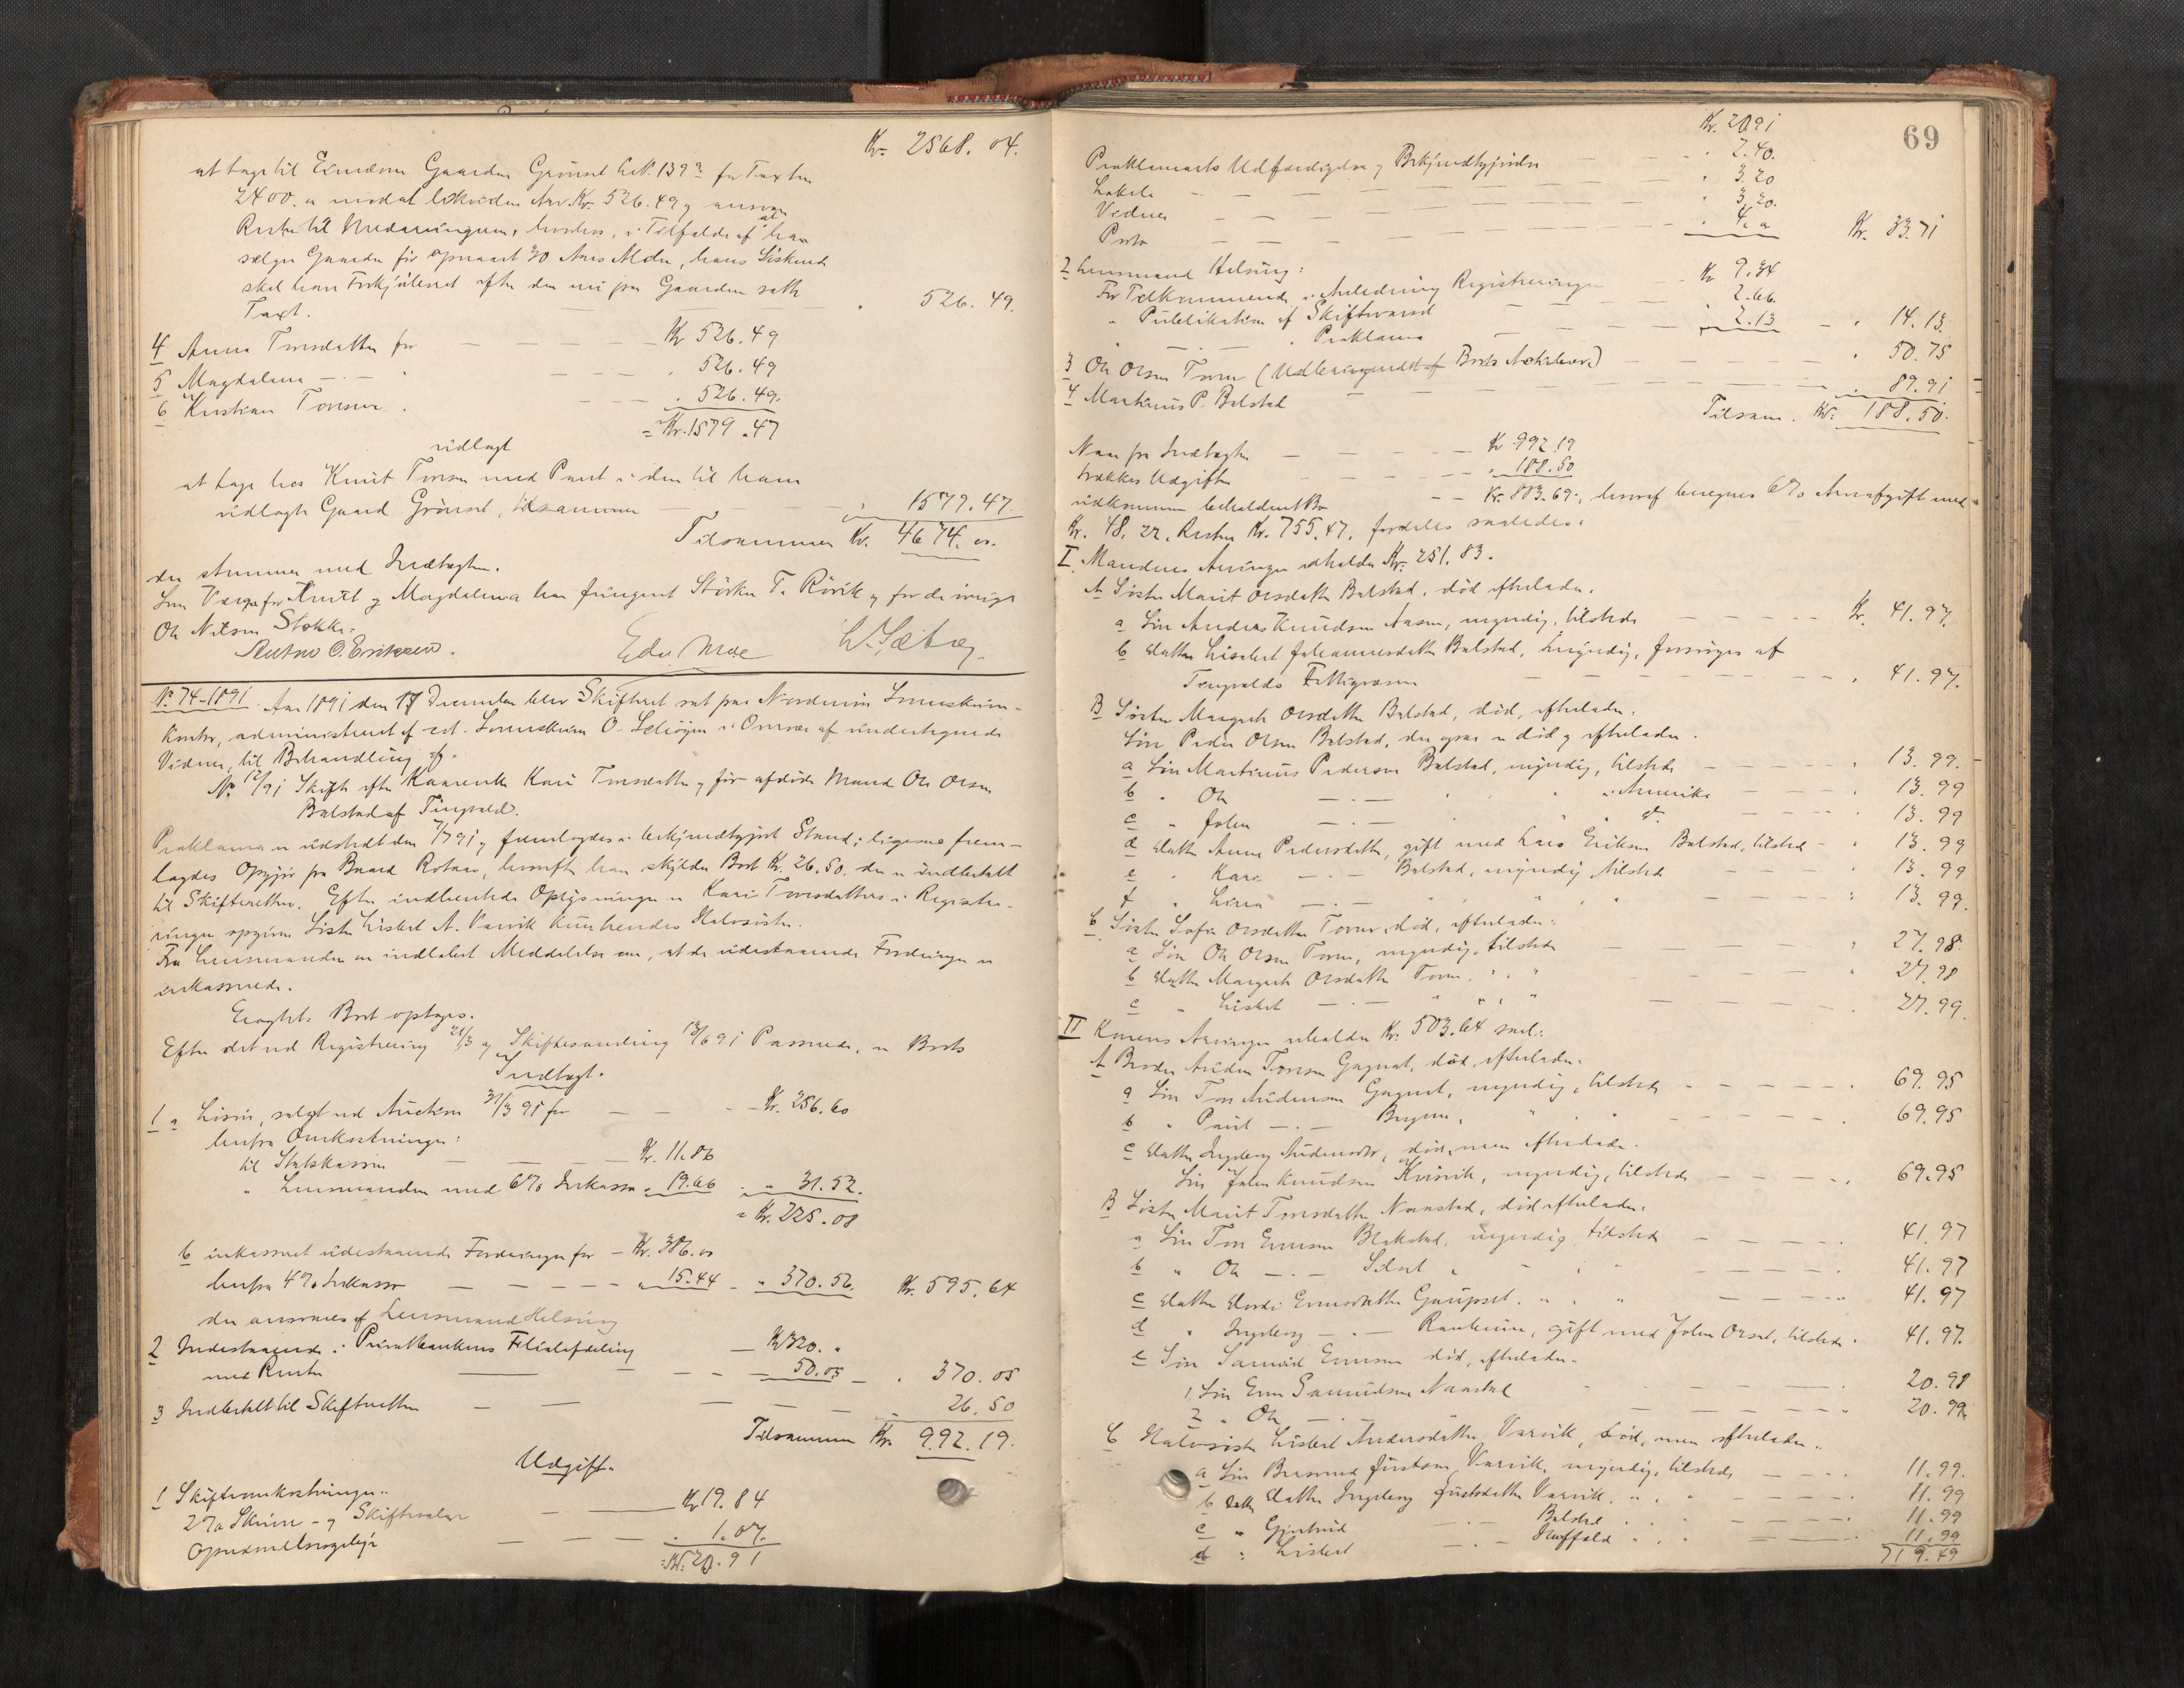 Kr. 2568. 04.
at tage til Eiendom Gaarden Grönset L.N. 139 2 for Taxten
2400. " imod at likvidere Arv Kr. 526.49 og
Resten til Medarvingerne, hvorhos, i Tilfælde af at han
sælger Gaarden før opnaaet 30 Aars Alder, hans Söskende
skal have Forkjöbsret efter den nu paa Gaarden satte
Taxt. — " 526. 49.
4 Anna Toresdatter for — Kr 526.49
5 Magdalena — " — 526.49
6 Kristian Toresen " — 526.49.
= Kr. 1579.47
udlagt
at tage hos Knut Toresen med Pant i den til ham
udlagte Gaard Grönset, tilsammen — " 1579.47.
Tilsammen Kr. 4674. 00.
der stemmer med Indtægten.
Som Værge for Knut og Magdalena har fungeret Störker T. Rövik og for de övrige
Ole Nilsen Stokke.
Anton O. Eriksen. Edv. Moe
No 74-1891. Aar 1891 den 17 December blev Skifteret sat paa Nordmöre Sorenskriver-
kontor, administreret af cst. Sorenskriver O. Schiögen i Overvær af undertegnede
Vidner, til Behandling af:
No 12/91 Skifte efter Kaarenke Kari Toresdatter og för afdöde Mand Ole Olsen
Bulstad af Tingvold.
Proklama er udstedt den 7/7 91 og fremlagdes i bekjendtgjort Stand; ligesaa frem-
lagdes Opgjör fra Baard Rotnes, hvorefter han skylder Boet Kr. 26.50. der er indbetalt
til Skifteretten. Efter indhentede Oplysninger er Kari Toresdatters i Registre-
ringen opgivne Söster Lisbet A. Varvik kun hendes Halvsöster.
Fra Lensmanden er indløbet Meddelelse om, at de udestaaende Fordringer er
inkasserede.
Eragtet: Boet optages.
Efter det ved Registrering 21/3 og Skiftesamling 13/6 91 Passerede, er Boets
Indtægt.
1 a Lösöre, solgt ved Auktion 31/3 91 for — Kr. 256.60
herfra Omkostninger:
til Statskassen — Kr. 11.86
" Lensmanden med 6% Inkasso " 19.66 — " 31.52.
= Kr. 225.08
b inkasseret udestaaende Fordringer for — Kr. 386.00
herfra 4% Inkasso — " 15.44 — " 370.56. Kr. 595.64
der ansvares af Lensmand Helsing
2 Indestaaende i Privatbankens Filialafdeling — Kr 320. "
med Renter — 50.05 — " 370.05
3 Indbetalt til Skifteretten — 26.50
Tilsammen Kr. 992.19.
Udgift.
1 Skifteomkostninger:
2% Skriver- og Skiftesalær — Kr 19.84
Opnævnelsesgebyr — " 1.07.
= Kr. 20.91
69
Kr. 20.91
Proklamaets Udfærdigelse og Bekjendtgjörelse — " 2.40.
Lokale — " 3.20
Vidner — " 3.20.
Porto — " 4. " Kr. 33.71
2 Lensmand Helsing:
For Tilkommende i Anledning Registreringen — Kr 9.34
" Publikation af Skiftevarsel — 2.66.
" — " — " Proklama — " 2.13 — " 14.13.
3 Ole Olsen Torve (Udlæg Boets Anliggender) — " 50.75
4 Martinus P. Bulstad — " 89.91
Tilsam. Kr. 188.50.
Naar fra Indtægten — Kr 992.19
trækkes Udgiften — " 188.50
udkommer beholdent Bo — Kr. 803.69, hvoraf beregnes 6% Arveafgift med
Kr. 48.22. Resten Kr. 755.47. fordeles saaledes:
I. Mandens Arvinger erholder Kr. 251.83.
A Söster Marit Olsdatter Bulstad, död, efterladende:
a Sön Anders Knudsen Aasen, myndig, tilstede — Kr. 41.97.
b Datter Lisabet Johannesdatter Bulstad, umyndig, forsörges af
Tingvolds Fattigvæsen — " 41.97.
B Söster Margrete Olsdatter Bulstad, död, efterladende:
Sön Peder Olsen Bulstad, der ogsaa er död og efterladende:
a Sön Martinus Pedersen Bulstad, myndig, tilstede — " 13.99.
b " Ole — " — " " i Amerika — " 13.99
c " John — " — " " do — " 13.99
d Datter Anne Pedersdatter, gift med Lars Eriksen Bulstad, tilstede — " 13.99
e " Kari — " — Bulstad, myndig tilstede — " 13.99
f " Lina — " — " " " — " 13.99.
C Söster Sofie Olsdatter Torve, död, efterladende:
a Sön Ole Olsen Torve, myndig, tilstede — " 27.98.
b Datter Margrete Olsdatter Torve, " " " — " 27.98
c " Lisbet — " — " " " " — " 27.99.
II Konens Arvinger erholder Kr. 503.64 sml:
A Broder Auden Toresen Gagnat, död, efterladende:
a Sön Tore Audensen Gagnat, myndig, tilstede — " 69.95
b " Paul — " — Bugen, " " — " 69.95
c Datter Ingeborg Audensdtr, död, men efterladende:
Sön John Knudsen Kvisvik, myndig, tilstede — " 69.95
B Söster Marit Toresdatter Naastad, död efterladende:
a Sön Tore Evensen Blakstad, myndig, tilstede — 41.97
b " Ole — " — Silset " " " — 41.97
c Datter Dordi Evensdatter Gaupset, " " " — 41.97
d " Ingeborg — " — Ranheim, gift med John Orset, tilstede " 41.97.
e Sön Samuel Evensen död, efterladende:
1. Sön Even Samuelsen Naastad — 20.98
2 " Ole — " — 20.99.
C Halvsöster Lisbet Andersdatter Varvik, död, men efterladende:
a Sön Bersvend Justsen Varvik, myndig, tilstede — 11.99.
b Datter Ingeborg Justsdatter Varvik, " " " — 11.99
c " Gjertrud — " — Bulstad " " — 11.99
d " Lisbet — " — " " — 11.99
719.49